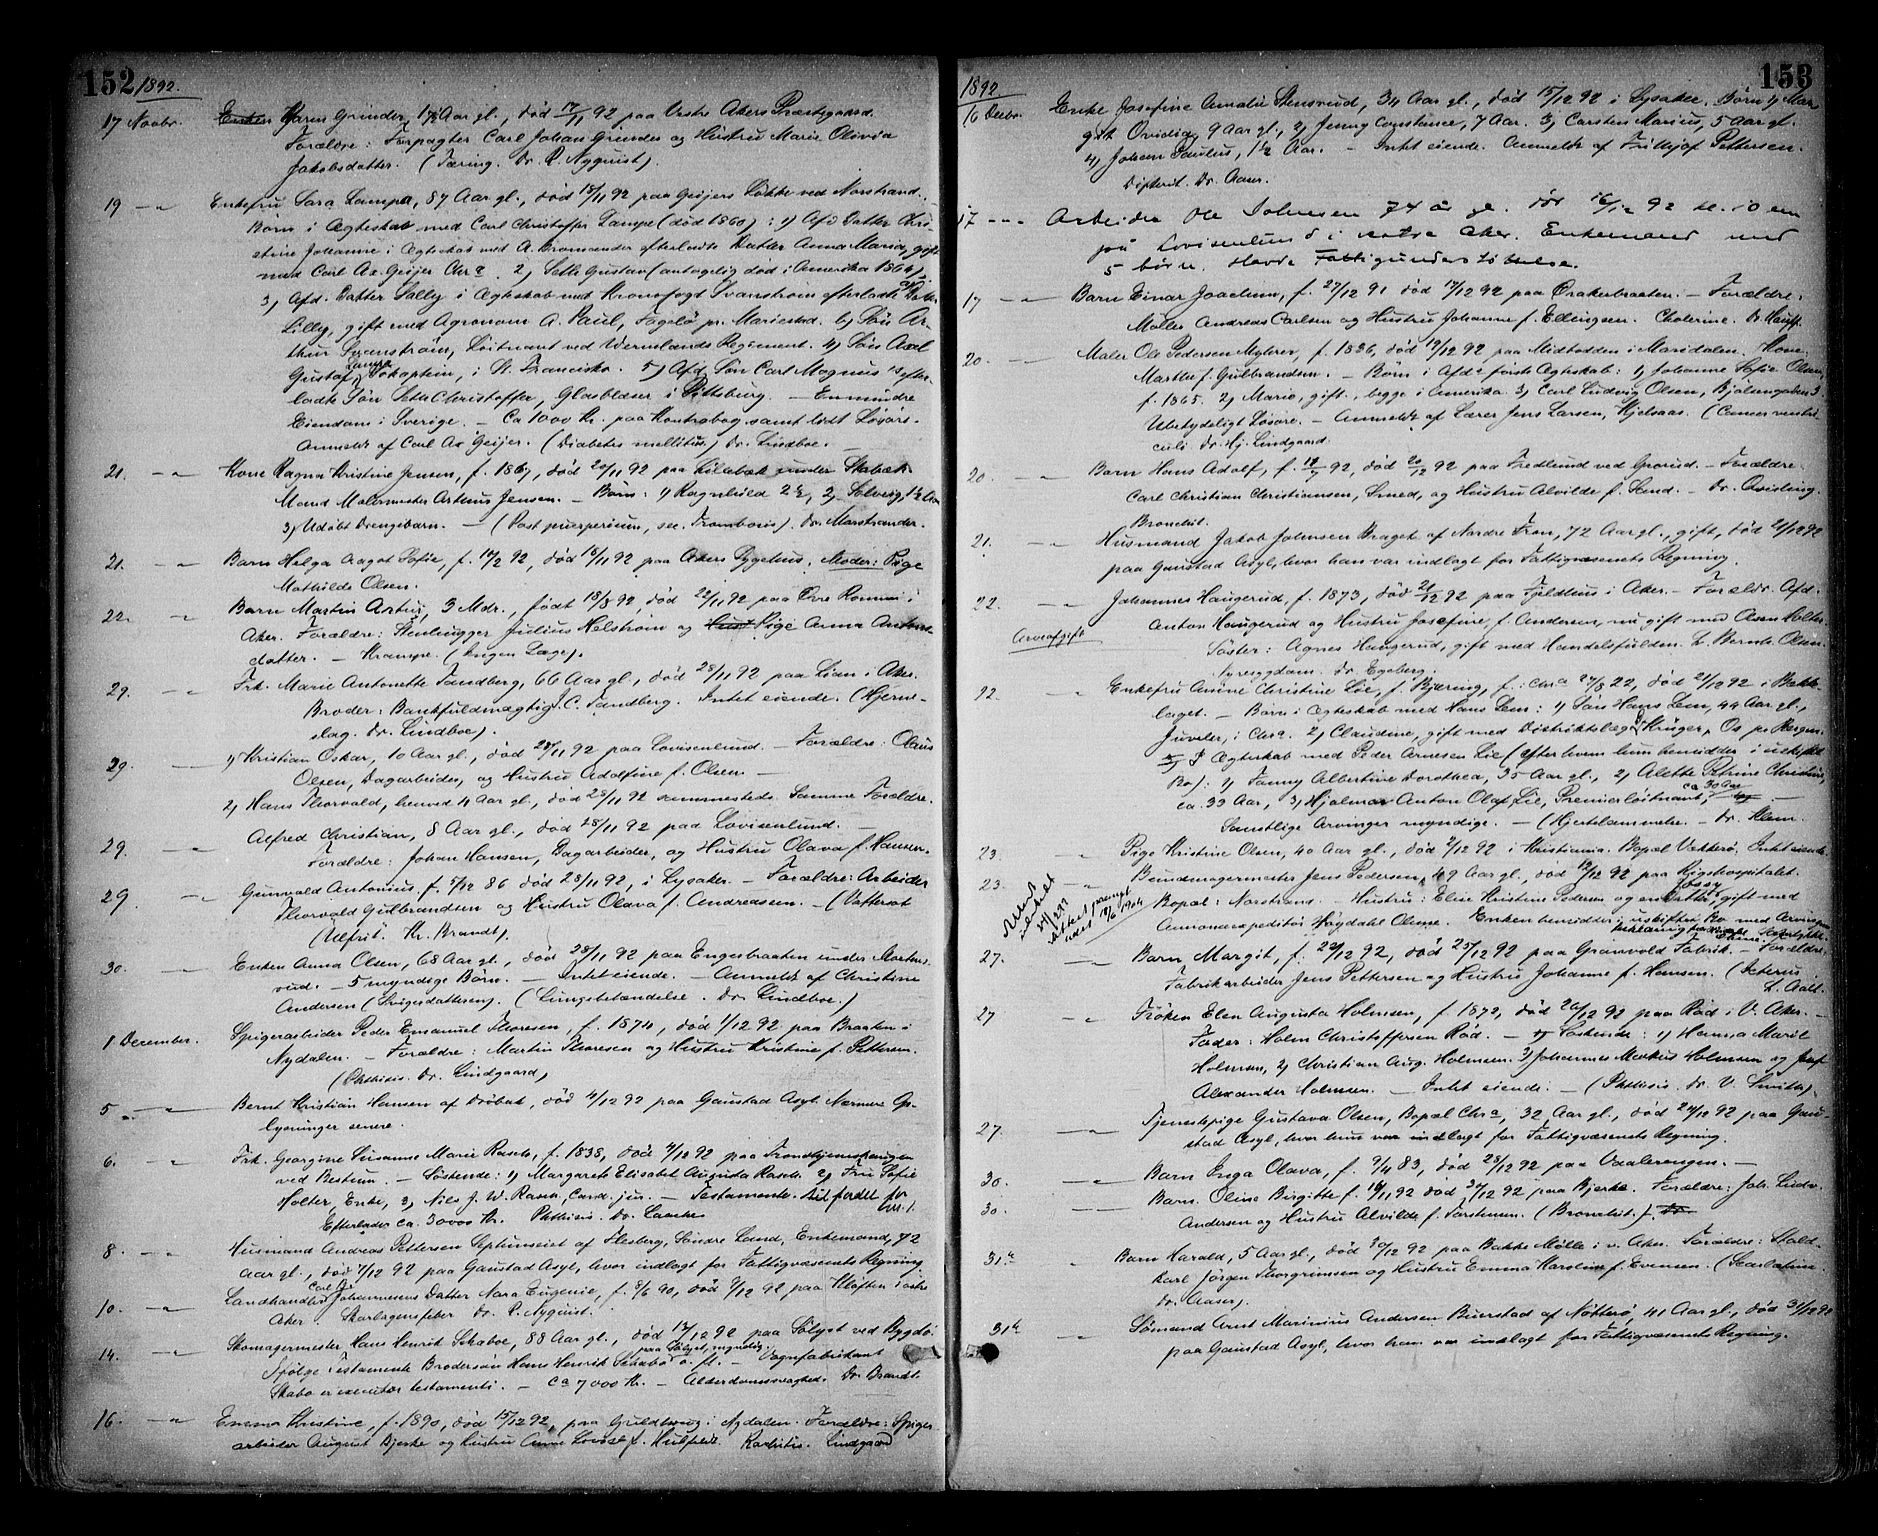 152 1892.
17 Novbr. Enken Karen Grinder, 1½ Aar gl., død 17/11 92 paa Vestre Akers Præstegaard.
Forældre: Forpagter Carl Johan Grinder og Hustru Marie Olivia
Jakobsdatter. (Tæring. Dr. R. Nyquist).
19 —"— Enkefru Sara Lampa, 87 Aar gl., død 15/11 92 paa Geijers Løkke ved Norstrand.
Børn i Ægteskab med Carl Christoffer Lampa (død 1860): 1) Afd. Datter Chri-
stine Johanne i Ægteskab med A. Bromander efterladte Datter Anna Maria, gift
med Carl Ax. Geijer Chra. 2) Seth Gustav (antagelig død i Amerika 1864).
3) Afd. Datter Sally i Ægteskab med Kronofogd Svanström efterladte a) Datter
Lilly, gift med Agronom A. Paul, Fogelö pr. Mariestad. b) Søn Ar-
thur Svanström, Löitnant ved Wermlands Regiment. 4) Søn Axel
Gustaf Lampa, Søkaptein, i St. Francisko. 5) Afd. Søn Carl Magnus's efter-
ladte Søn Seth Christoffer, Glasblæser i Pittsburg. — En mindre
Eiendom i Sverige. — Ca 1000 Kr. paa Kontrabog samt lidt Løsøre.
Anmeldt af Carl Ax Geijer. (Diabetes mellitus) Dr. Lindboe.
21. —"— Kone Ragna Kristine Jensen, f. 1867, død 20/11 92 paa Lillebæk under Skabæk.
Mand Malermester Arthur Jensen. — Børn: 1) Ragnhild 2½, 2) Solveig, 1½ Aar
3) Udøbt Drengebarn. — (Post puerperium, sec. Trombosis). Dr. Marstrander.
21. —"— Barn Helga Aagot Sofie, f. 14/2 92, død 18/11 92 paa Akers Sygehus. Moder: Pige
Mathilde Olsen.
22. —"— Barn Martin Artur, 3 Mdr., født 18/8 92, død 22/11 92 paa Øvre Rommen i
Aker. Forældre: Stenhugger Julius Helström og Hust Pige Anna Anders-
datter. — Krampe. (Ingen Læge).
29. —"— Frk. Marie Antonette Sandberg, 66 Aar gl., død 28/11 92 paa Lian i Aker.
Broder: Bankfuldmægtig J. C. Sandberg. Intet eiende. (Hjerne-
slag. Dr. Lindboe).
29. —"— 1) Kristian Oskar, 10 Aar gl., død 28/11 92 paa Lovisenlund. — Forældre: Olaus
Olsen, Dagarbeider, og Hustru Adolfine f. Olsen —
2) Hans Thorvald, henved 4 Aar gl., død 28/11 92 sammesteds. Samme Forældre.
29. —"— Alfred Christian, 8 Aar gl., død 28/11 92 paa Lovisenlund. —
Forældre: Johan Hansen, Dagarbeider, og Hustru Olava f. Hansen.
29. —"— Gunvald Antonius, f. 5/12 86 død 28/11 92, i Lysaker. — Forældre: Arbeider
Thorvald Gulbrandsen og Hustru Olava f. Andreassen. — (Vattersot
(Nefrit. Kr. Brandt).
30. —"— Enken Anna Olsen, 68 Aar gl., død 28/11 92 paa Engesbraaten under Mortens-
rud. — 5 myndige Børn. — Intet eiende. — Anmeldt af Christine
Andersen (Svigerdatteren). (Lungebetændelse. Dr. Lindboe.)
1 December. Spigerarbeider Peder Emanuel Thoresen, f. 1874, død 1/12 92 paa Braaten i
Nydalen. — Forældre: Martin Thoresen og Hustru Kristine f. Pettersen.
(Phthisis. Dr. Lindgaard)
5 —"— Bernt Kristian Hansen af Drøbak, død 4/12 92 paa Gaustad Asyl. Nærmere Op-
lysninger senere.
6. —"— Frk. Georgine Susanne Marie Rasch, f. 1838, død 4/12 92 paa Trondhjemshaugen
ved Bestum. — Søskende: 1) Margarete Elisabet Augusta Rasch 2) Fru Sofie
Holter, Enke, 3) Nils J. W. Rasch, Cand. jur. — Testamente.
Efterlader ca. 30000 Kr. Phthisis. Dr. Laache
8. —"— Husmand Andreas Pettersen Septunseiet af Flesberg, Søndre Land, Enkemand, 72
aar gl., død 7/12 92 paa Gaustad Asyl, hvor indlagt for Fattigvæsenets Regning.
10. —"— Landhandler Carl Johannesens Datter Nara Eugenie, f. 8/6 90, død 9/12 92, paa Kløften Vestre
Aker. Skarlagensfeber Dr. R. Nyquist.
14. —"— Skomagermester Hans Henrik Schaboe, 88 Aar gl., død 13/12 92 paa Sølyst ved Bygdø
Ifølge Testamente Brodersøn Hans Henrik Schabo paa Sølyst, myndig o. fl. — Vognfabrikant
Skabo er executor testamenti. — Ca 7000 Kr. — Alderdomssvaghed. Dr Brandt.
16. —"— Emma Kristine, f. 1890, død 15/12 92, paa Guldhaug i Nydalen. Forældre: Spiger-
arbeider August Bjerke og Hustru Anne Lovise f. Hulfeldt. Rachitis. Lindgaard
153
1892
16 Decbr. Enke Josefine Amalie Stensrud, 34 Aar gl., død 15/12 92 i Lysaker. Børn 1) Mar-
git Ovidia, 9 Aar gl., 2) Jenny Constance, 7 Aar. 3) Carsten Marius, 5 Aar gl.
4) Johan Paulus, 1½ Aar. — Intet eiende. Anmeldt af Frithjof Pettersen.
Difterit. Dr. Aaser.
17 —"— Arbeider Ole Johnsen 74 år gl. dør 16/12 92 kl. 10 em
på Lovisenlund i vestre Aker. Enkemand med
5 børn. Havde Fattigunderstøttelse.
17 —"— Barn Einar Joachim, f. 27/12 91 død 17/12 92 paa Ørakerbraaten. — Forældre:
Møller Andreas Carlsen og Hustru Johanne f. Ellingsen. Cholerine. Dr. Hauff.
20. —"— Maler Ole Pedersen Myhrer, f. 1836, død 19/12 92 paa Midtodden i Maridalen. Kone:
Marthe f. Gulbrandsen. — Børn i Afdes første Ægteskab: 1) Johanne Sofie Olsen,
f. 1865. 2) Marie, gift, begge i Amerika 3) Carl Ludvig Olsen, Bjølsengaden 3.
Ubetydeligt Løsøre. — Anmeldt af Lærer Jens Larsen, Kjelsaas. (Cancer ventri-
culi Dr. Hj. Lindgaard
20. —"— Barn Hans Adolf, f. 19/7 92, død 20/12 92 paa Fredlund ved Grorud. — Forældre:
Carl Christian Christiansen, Smed, og Hustru Alvilde f. Lund. — Dr. Qvisling.
Bronchit.
21. —"— Husmand Jakob Johnsen Braget af Nordre Fron, 72 Aar gl., gift, død 21/12 92
paa Gaustad Asyl, hvor han var indlagt for Fattigvæsenets Regning.
22. —"— Johannes Haugerud, f. 1873, død 21/12 92 paa Fjeldhus i Aker. — Forældr. Afd.
Arveafgift
Anton Haugerud og Hustru Josefine, f. Andersen, nu gift med Olsen Holter.
Søster: Agnes Haugerud, gift med Handelsfuldm. L. Bernth Olsen.
Dr. Egeberg.
22. —"— Enkefru Anine Christine Lie, f. Bjering, f. i Chra 27/8 22, død 21/12 92 i Bække-
laget. — Børn i Ægteskab med Hans Lem: 1) Søn Hans Lem, 44 Aar gl.,
Juveler, i Chra. 2) Claudine, gift med Distriktslæge Krüger, Os pr Bergen.
I Ægteskab med Peder Arnesen Lie (efter hvem hun hensidder i uskiftet
Bo): 1) Fanny Albertine Dorothea, 35 Aar gl., 2) Alette Petrine Christine,
ca. 33 Aar, 3) Hjalmar Anton Olaf Lie, Premierløitnant, ca 30 Aar. —
Samtlige Arvinger myndige. — (Hjertelammelse. — Dr. Klem.
23. —"— Pige Kristine Olsen, 40 Aar gl., død 9/12 92 i Kristiania. Bopæl Vækkerø. Intet eiende.
23. —"— Bundmagermester Jens Pedersen, 49 Aar gl., død 19/12 92 paa Rigshospitalet.
Bopæl: Norstrand. — Hustru: Elise Kristine Pedersen og en Datter, gift med
Annonceexpeditør Høydahl Ohme. Enken hensidder i uskiftet Bo med Arvingen
27. —"— Barn Margit, f. 22/12 92, død 25/12 92 paa Grünvold Fabrik. — Forældre:
Fabrikarbeider Jens Pettersen og Hustru Johanne f. Hansen. (Icterus.
L. Aall.
27 —"— Frøken Elen Augusta Holmsen, f. 1872, død 26/12 92 paa Rød i V. Aker. —
Fader: Holm Christoffersen Rød. — Søskende: 1) Hanna Marit
Holmsen, 2) Christian Aug. Holmsen. 3) Johannes Markus Holmsen og Josef
Alexander Holmsen. — Intet eiende. — (Phthisis. Dr. V. Smith).
27. —"— Tjenestepige Gustava Olsen, Bopæl Chra, 32 Aar gl., død 24/12 92 paa Gau-
stad Asyl, hvor hun var indlagt for Fattigvæsenets Regning.
30. —"— Barn Enga Olava, f. 9/4 83, død 28/12 92 paa Vaalerengen. —
30. —"— Barn Oline Birgitte f. 16/11 92 død 24/12 92 paa Bjerke. Forældre: Joh. Ludv.
Andersen og Hustru Alvilde f. Torstensen. (Bronchit.).
31te " Barn Harald, 5 Aar gl., død 30/12 92 paa Bakke Mølle i v. Aker. Forældre: Stald-
karl Jørgen Thorgrimsen og Hustru Emma Karoline f. Evensen. (Scarlatina.
Dr. Aaser).
31te —"— Sømand Arnt Marinius Andersen Buerstad af Nøtterø, 41 Aar gl., død 31/12 92
paa Gaustad Asyl, hvor han var indlagt for Fattigvæsenets Regning.